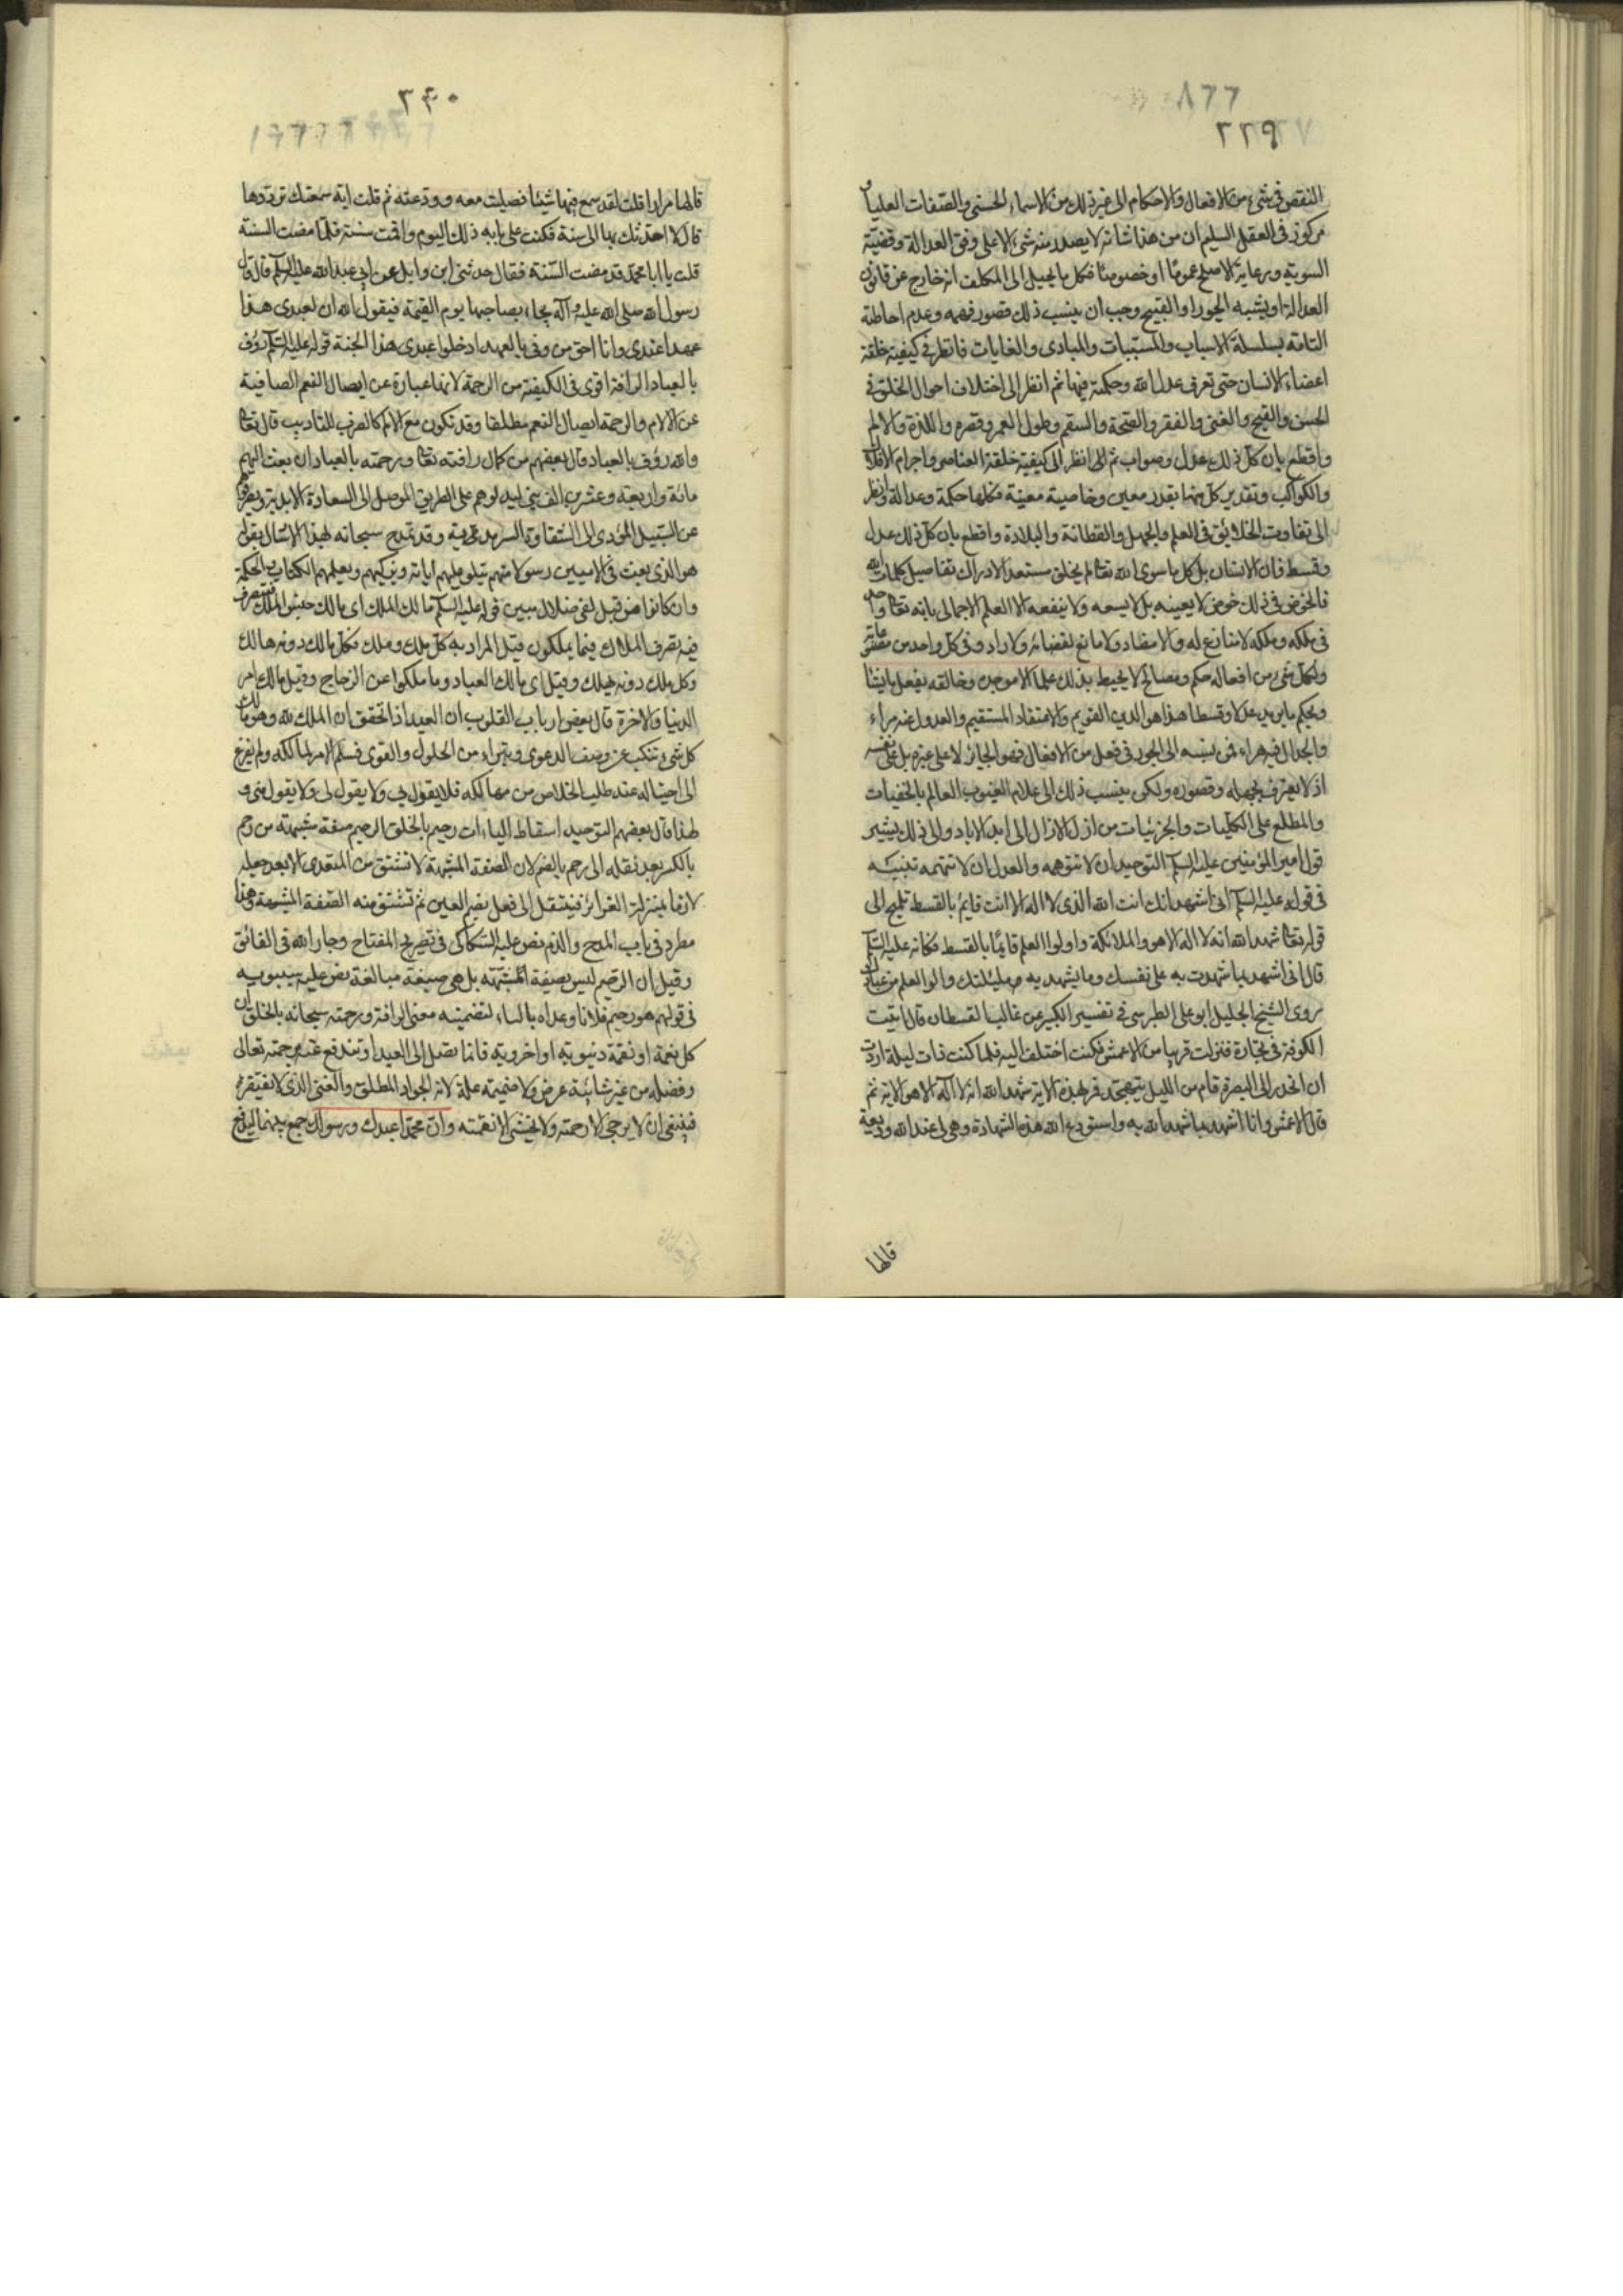 ٨٦٦
٢٣٩
النقص فى شئ من الافعال والاحكام الى غير ذلك من الاسماء الحسنى والصفات العليا و
مركوز فى العقل السليم ان من هذا شانه لا يصدر منه شئ الا على وفق العدالة وقضيّة
السوية ورعاية الاصلح عموما او خصوصا فكل ما يخيل الى المكلف انه خارج عن قانون
العدالة او يشبه الجور او القبيح وجب ان ينسب ذلك قصور فهمه وعدم احاطته
التامّة بسلسلة الاسباب والمسبّبات والمبادى والغايات فانظر فى كيفية خلقة
اعضاء الانسان حتى تعرف عدل الله وحكمته فيها ثم انظر الى اختلاف احوال الخلق فى
الحسن والقبح والغنى والفقر والصّحة والسقم وطول العمر وقصره واللذة والالم
واقطع بان كل ذلك عدل وصواب ثم انظر الى كيفية خلقة العناصر واجرام الافلاك
والكواكب وتقدير كل منها بقدر معين وخاصية معينة فكلها حكمة وعدالة وانظر
الى تفاوت الخلائق فى العلم والجهل والفطانة والبلادة واقطع بان كل ذلك عدل
وقسط فان الانسان بل كل ما سوى الله تعا لم يخلق مستعد الادراك تفاصيل كلمات الله
فالخوض فى ذلك خوض لا يعينه بل لا يسعه ولا ينفعه الا العلم الاجمالى بانه تعا واحد
فى ملكه وملكه لا منازع له ولا مضاد ولا مانع لقضائه ولا راد وفى كل واحد من
ولكل شئ من افعاله حكم ومصالح لا يحيط بذلك علما الا موجده وخالقه يفعل ما يشا
ويحكم ما يريد عدلا وقسطا هذا هو الدين القويم والاعتقاد المستقيم والعدول عنه مراء
والجدال فيه هراء فمن نسبه الى الجور فى فعل من الافعال فهو الجائر لا على غيره بل على نفسه
اذ لا يعترف بجهله وقصوره ولكن ينسب ذلك الى علام الغيوب العالم بالخفيات
والمطلع على الكليات والجزئيات من ازل الازال الى ابد الاباد والى ذلك يشير
قول امير المؤمنين عليه السلم التوحيد ان لا تتوهمه والعدل ان لا تتهمه تنبيه
فى قوله عليه السلم انى اشهد انك انت الله الذى لا اله الا انت قايم بالقسط تلميح الى
قوله تعا شهد الله انه لا اله الا هو والملائكة واولوا العلم قايمًا بالقسط فكانه عليه السلم
قال انى اشهد بما شهدت به على نفسك وما يشهد به ملئكتك واولوا العلم من عبادك
روى الشيخ الجليل ابو على الطبرسى فى تفسير الكبير عن غالب القسطان قال اتيت
الكوفة فى تجارة فنزلت قريبا من الاعمش فكنت اختلف اليه فلما كنت ذات ليلة اردت
ان انحدر الى البصرة قام من الليل يتهجد فمر بهذه الاية شهد الله انه لا اله الا هو الاية ثم
قال الاعمش وانا اشهد بما شهد الله به واستودع الله هذه الشهادة وهى لى عند الله وديعة
قالها
٢٤٠
قالها مرارا قلت لقد سمع فيها شيئا فصليت معه وودعته ثم قلت اية سمعتك تردّدها
قال لا احدّثك بها الى سنة فكنت على بابه ذلك اليوم واقمت سنة فلمّا مضت السنة
قلت يا ابا محمد قد مضت السّنة فقال حدثنى ابن وايل عن ابى عبد الله عليه السلم قال قال
رسول الله صلى الله عليه وآله يجاء بصاحبها يوم القيمة فيقول الله ان لعبدى هذا
عهدا عندى وانا احق من وفى بالعهد ادخلوا عبدى هذا الجنة قوله عليه السلم رؤف
بالعباد الرافة اقوى فى الكيفية من الرحمة لانها عبارة عن ايصال النعم الصافية
عن الالام والرحمة ايصال النعم مطلقا وقد تكون مع الالم كالضرب للتاديب قال تعا
والله رؤف بالعباد وقال بعضهم من كمال رافته تعا ورحمته بالعباد ان بعث اليهم
مائة واربعة وعشرين الف نبى ليدلوهم على الطريق الموصل الى السعادة الابدية ويصرفهم
عن السّبيل المؤدى الى الشقاوة السرمدية وقد تمدح سبحانه لهذا الامتنان بقوله
هو الذى بعث فى الاميين رسولا منهم يتلو عليهم اياته ويزكيهم ويعلمهم الكتاب والحكمة
وان كانوا من قبل لفى ضلال مبين قوله عليه السلم مالك الملك اى مالك جنس الملك فيتصرف
فيه تصرف الملاك فيما يملكون وقيل المراد به كل ملك وملك فكل مالك دونه هالك
وكل ملك دونه يهلك وقيل اى مالك العباد وما ملكوا عن الزجاج وقيل مالك امر
الدنيا والاخرة قال بعض ارباب القلوب ان العبد اذا تحقق ان الملك لله وهو مالك
كل شئ تنكب عن وصف الدعوى وتبراء من الحلول والقوى فسلم الامر لمالكه ولم يفزع
الى احتياله عند طلب الخلاص من مهالكه فلا يقول بى ولا يقول لى ولا يقول منى و
لهذا قال بعضهم التوحيد اسقاط الياءات رحيم بالخلق الرحيم صفة مشبهة من رحم
بالكسر بعد نقله الى رحم بالضم لان الصفة المشبهة لا تشتق من المتعدى الا بعد جعله
لازما بمنزلة الغرائز فينتقل الى فعل بضم العين ثم تشتق منه الصّفة المشبهة وهذا
مطرد فى باب المدح والذم نص عليه السّكاكى فى تصريح المفتاح وجار الله فى الفائق
وقيل ان الرحيم ليس بصيغة المشبّهة بل هى صيغة مبالغة نص عليه سيبويه
فى قولهم هو رحيم فلانا وعداه بالباء لتضمينه معنى الرافة ورحمته سبحانه بالخلق ان
كل نعمة او نقمة دنيوية او اخروية فانما تصل الى العبد او تندفع عنه برحمته تعالى
وفضله من غير شائبة عرض ولا ضميمة علة لانه الجواد المطلق والغنى الذى لا يفتقر
فينبغى ان لا يرجى الا رحمته ولا يخشى الا نقمته وان محمدا عبدك ورسولك جمع بينهما ليدفع